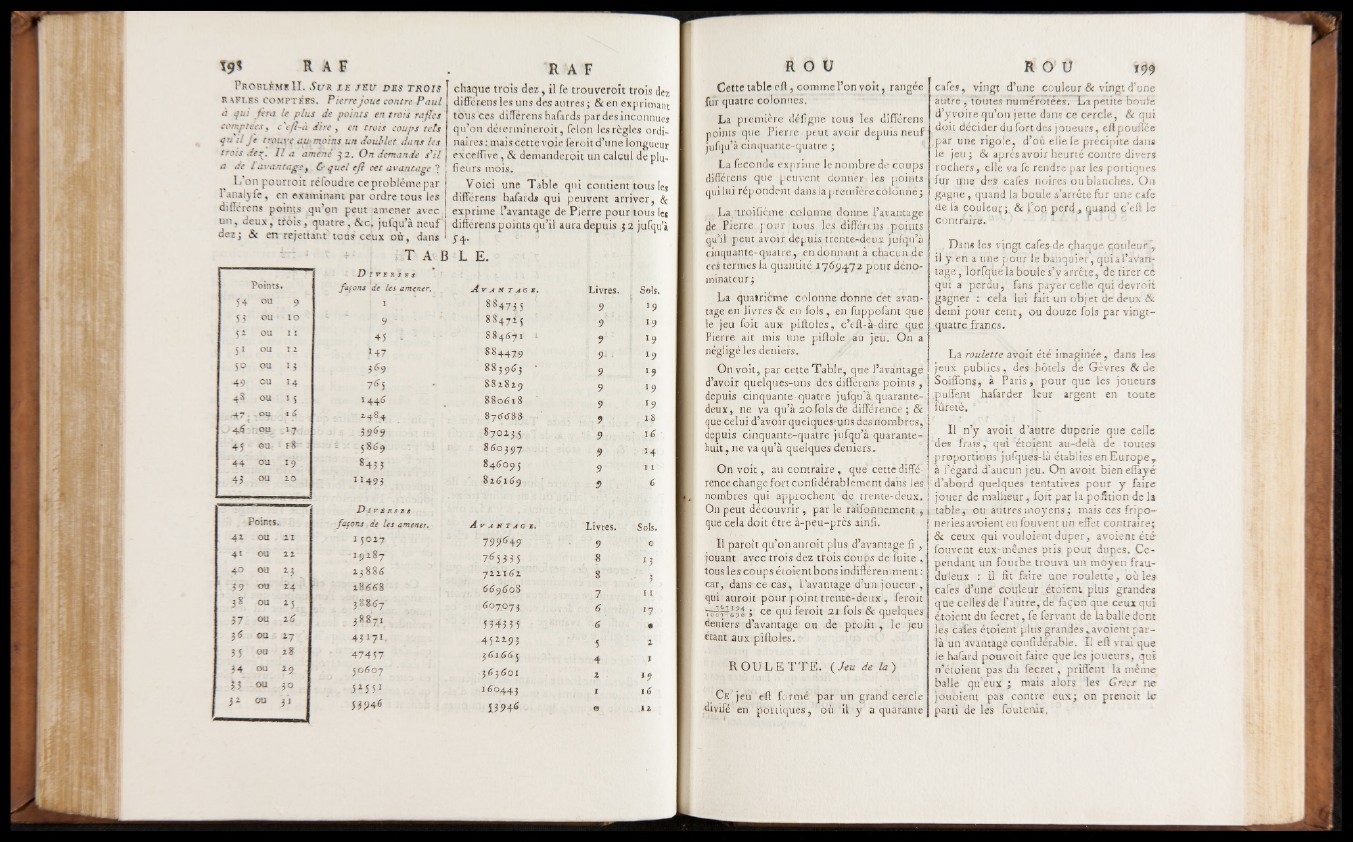 198 RAF
PROBLÉME II. SUR LE JEU DES TROIS
RAFLES COMPTÉES. Pierre joue contre Paul
à qui fera le plus de points en trois rafles
comptées, c'est-à-dire, en trois coups tels
qu'il se trouve au moins un doublet dans les
trois dez. Il a amené 32. On demande s'il
a de l'avantage, & quel est cet avantage ?
L'on pourroit résoudre ce problême par
l'analyse, en examinant par ordre tous les
différens points qu'on peut amener avec
un, deux, trois, quatre, &c, jusqu'à neuf
dez; & en rejettant tous ceux où, dans
RAF
chaque trois dez, il se trouveroit trois dez
différens les uns des autres; & en exprimant
tous ces différens hasards par des inconnues
qu'on détermineroit, selon les règles ordi-
naires: mais cette voie seroit d'une longueur
excessive, & demanderoit un calcul de plu-
sieurs mois.
Voici une Table qui contient tous les
différens hasards qui peuvent arriver, &
exprime l'avantage de Pierre pour tous les
différens points qu'il aura depuis 32 jusqu'à
54.
TABLE.
Points. DIVERSES façons de les amener. AVANTAGE. Livres. Sols.
54 ou 9 1 884735 9 19
53 ou 10 9 884725 9 19
52 ou 11 45 884671 9 19
51 ou 12 147 884479 9 19
50 ou 13 369 883963 9 19
49 ou 14 765 882829 9 19
48 ou 15 1446 880618 9 19
47 ou 16 2484 876688 9 18
46 ou 17 3969 870235 9 16
45 ou 18 5869 860397 9 14
44 ou 19 8433 846095 9 11
43 ou 20 11493 826169 9 6
Points. DIVERSES façons de les amener. AVANTAGE. Livres. Sols.
42 ou 21 15027 799649 9 0
41 ou 22 19287 765335 8 13
40 ou 23 23886 722162 8 3
39 ou 24 28668 669608 7 11
38 ou 25 38867 607073 6 17
37 ou 26 38871 534335 6 0
36 ou 27 43171 452293 5 2
35 ou 28 47457 361665 4 1
34 ou 29 50607 363601 2 19
33 ou 30 52551 160443 1 16
32 ou 31 53946 53946 0 12
ROU
Cette table est, comme l'on voit, rangée
sur quatre colonnes.
La première désigne tous les différens
points que Pierre peut avoir depuis neuf
jusqu'à cinquante-quatre;
La seconde exprime le nombre de coups
différens que peuvent donner les points
qui lui répondent dans la première colonne;
La troisième colonne donne l'avantage
de Pierre pour tous les différens points
qu'il peut avoir depuis trente-deux jusqu'à
cinquante-quatre, en donnant à chacun de
ces termes la quantité 1769472 pour déno-
minateur;
La quatrième colonne donne cet avan-
tage en livres & en sols, en supposant que
le jeu soit aux pistoles, c'est-à-dire que
Pierre ait mis une pistole au jeu. On a
négligé les deniers.
On voit, par cette Table, que l'avantage
d'avoir quelques-uns des différens points,
depuis cinquante-quatre jusqu'à quarante-
deux, ne va qu'à 20 sols de différence; &
que celui d'avoir quelques-uns des nombres,
depuis cinquante-quatre jusqu'à quarante-
huit, ne va qu'à quelques deniers.
On voit, au contraire, que cette diffé-
rence change fort considérablement dans les
nombres qui approchent de trente-deux.
On peut découvrir, par le raisonnement,
que cela doit être à-peu-près ainsi.
Il paroît qu'on auroit plus d'avantage si,
jouant avec trois dez trois coups de suite,
tous les coups étoient bons indifféremment:
car, dans ce cas, l'avantage d'un joueur,
qui auroit pour point trente-deux, seroit
; ce qui seroit 21 sols & quelques
deniers d'avantage ou de profit, le jeu
étant aux pistoles.
ROULETTE. (Jeu de la)
CE jeu est formé par un grand cercle
divisé en portiques, où il y a quarante
ROU 199
cases, vingt d'une couleur & vingt d'une
autre, toutes numérotées. La petite boule
d'yvoire qu'on jette dans ce cercle, & qui
doit décider du sort des joueurs, est poussée
par une rigole, d'où elle se précipite dans
le jeu; & après avoir heurté contre divers
rochers, elle va se rendre par les portiques
sur une des cases noires ou blanches. On
gagne, quand la boule s'arrête sur une case
de la couleur; & l'on perd, quand c'est le
contraire.
Dans les vingt cases de chaque couleur,
il y en a une pour le banquier, qui a l'avan-
tage, lorsque la boule s'y arrête, de tirer ce
qui a perdu, sans payer celle qui devroit
gagner : cela lui fait un objet de deux &
demi pour cent, ou douze sols par vingt-
quatre francs.
La roulette avoit été imaginée, dans les
jeux publics, des hôtels de Gêvres & de
Soissons, à Paris, pour que les joueurs
pussent hasarder leur argent en toute
sûreté.
Il n'y avoit d'autre duperie que celle
des frais, qui étoient au-delà de toutes
proportions jusques-là établies en Europe,
à l'égard d'aucun jeu. On avoit bien essayé
d'abord quelques tentatives pour y faire
jouer de malheur, soit par la position de la
table, ou autres moyens; mais ces fripo-
neries avoient eu souvent un effet contraire;
& ceux qui vouloient duper, avoient été
souvent eux-mêmes pris pour dupes. Ce-
pendant un fourbe trouva un moyen frau-
duleux : il fit faire une roulette, où les
cases d'une couleur étoient plus grandes
que celles de l'autre, de façon que ceux qui
étoient du secret, se servant de la balle dont
les cases étoient plus grandes, avoient par-
là un avantage considérable. Il est vrai que
le hasard pouvoit faire que les joueurs, qui
n'étoient pas du secret, prissent la même
balle qu'eux; mais alors les Grecs ne
jouoient pas contre eux; on prenoit le
parti de les soutenir.